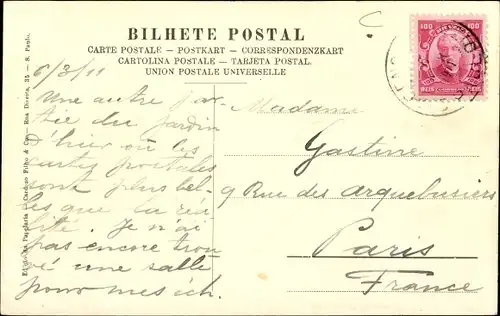 BILHETE POSTAL
CARTE POSTALE — POSTKART — CORRESPONDENZKART
CARTOLINA POSTALE — TARJETA POSTAL
UNION POSTALE UNIVERSELLE
100 100
REIS REIS
6/3/11
Une autre par
tie du jardin
d'hier où les
cartes postales
sont plus bel-
les que la réa
lité. Je n'ai
pas encore trou
vé une salle
pour mes ich.
Madame
Gastine
9 Rue des arquebusiers
Paris
France
Cardozo Filho & Co. — Rua Direita, 35 — S. Paulo.